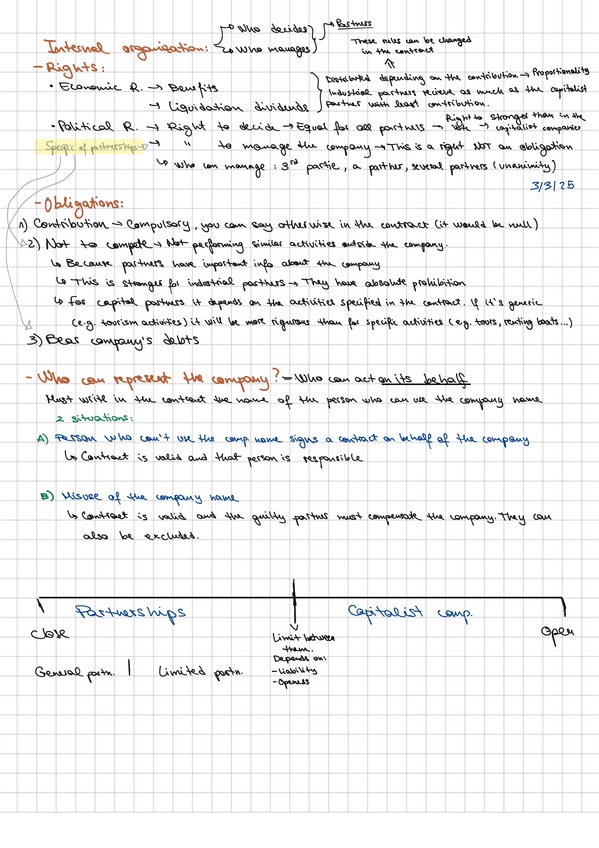 Internal organization: → Who decides → Who manages → Partners
These rules can be changed in the contract
- Rights:
• Economic R. → Benefits
→ Liquidation dividends
Distributed depending on the contribution → Proportionality
Industrial partners recieve as much as the capitalist
partner with least contribution.
• Political R. → Right to decide → Equal for all partners → Right to vote → stronger than in the capitalist companies
Specific of partnerships → " to manage the company → This is a right NOT an obligation
↳ Who can manage: 3rd partie, a partner, several partners (unanimity)
3/3/25
- Obligations:
1) Contribution → Compulsory, you can say otherwise in the contract (it would be null)
2) Not to compete → Not performing similar activities outside the company.
↳ Because partners have important info about the company
↳ This is stronger for industrial partners → They have absolute prohibition
↳ For capital partners it depends on the activities specified in the contract. If it's generic
(e.g. tourism activities) it will be more rigurous than for specific activities (e.g. tours, renting boats...)
3) Bear company's debts
- Who can represent the company? - Who can act on its behalf
Must write in the contract the name of the person who can use the company name
2 situations:
A) Person who can't use the comp name signs a contract on behalf of the company
↳ Contract is valid and that person is responsible
B) Misuse of the company name
↳ Contract is valid and the guilty partner must compensate the company. They can
also be excluded.
Partnerships Capitalist comp.
Close Open
Limit between
them.
Depends on:
- Liability
- Openess
General partn. | Limited partn.